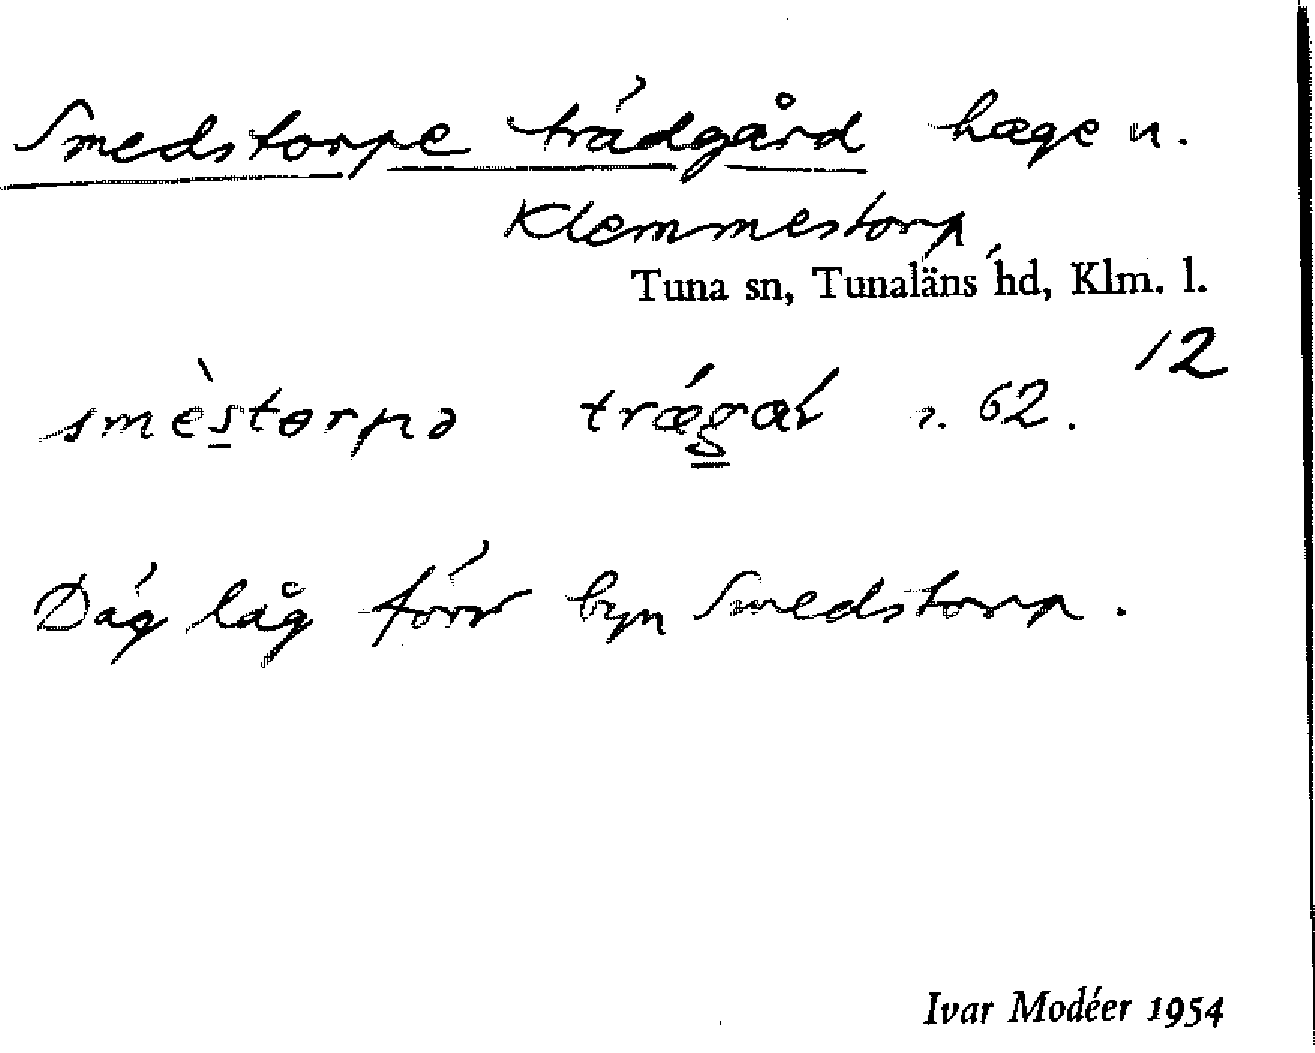 Smedstorpe trädgård hage u.
Klemmestorp,
Tuna sn, Tunaläns hd, Klm. l.
12
smèstorpə trǽgál 62.
Däg låg förr byn Smedstorp.
Ivar Modéer 1954